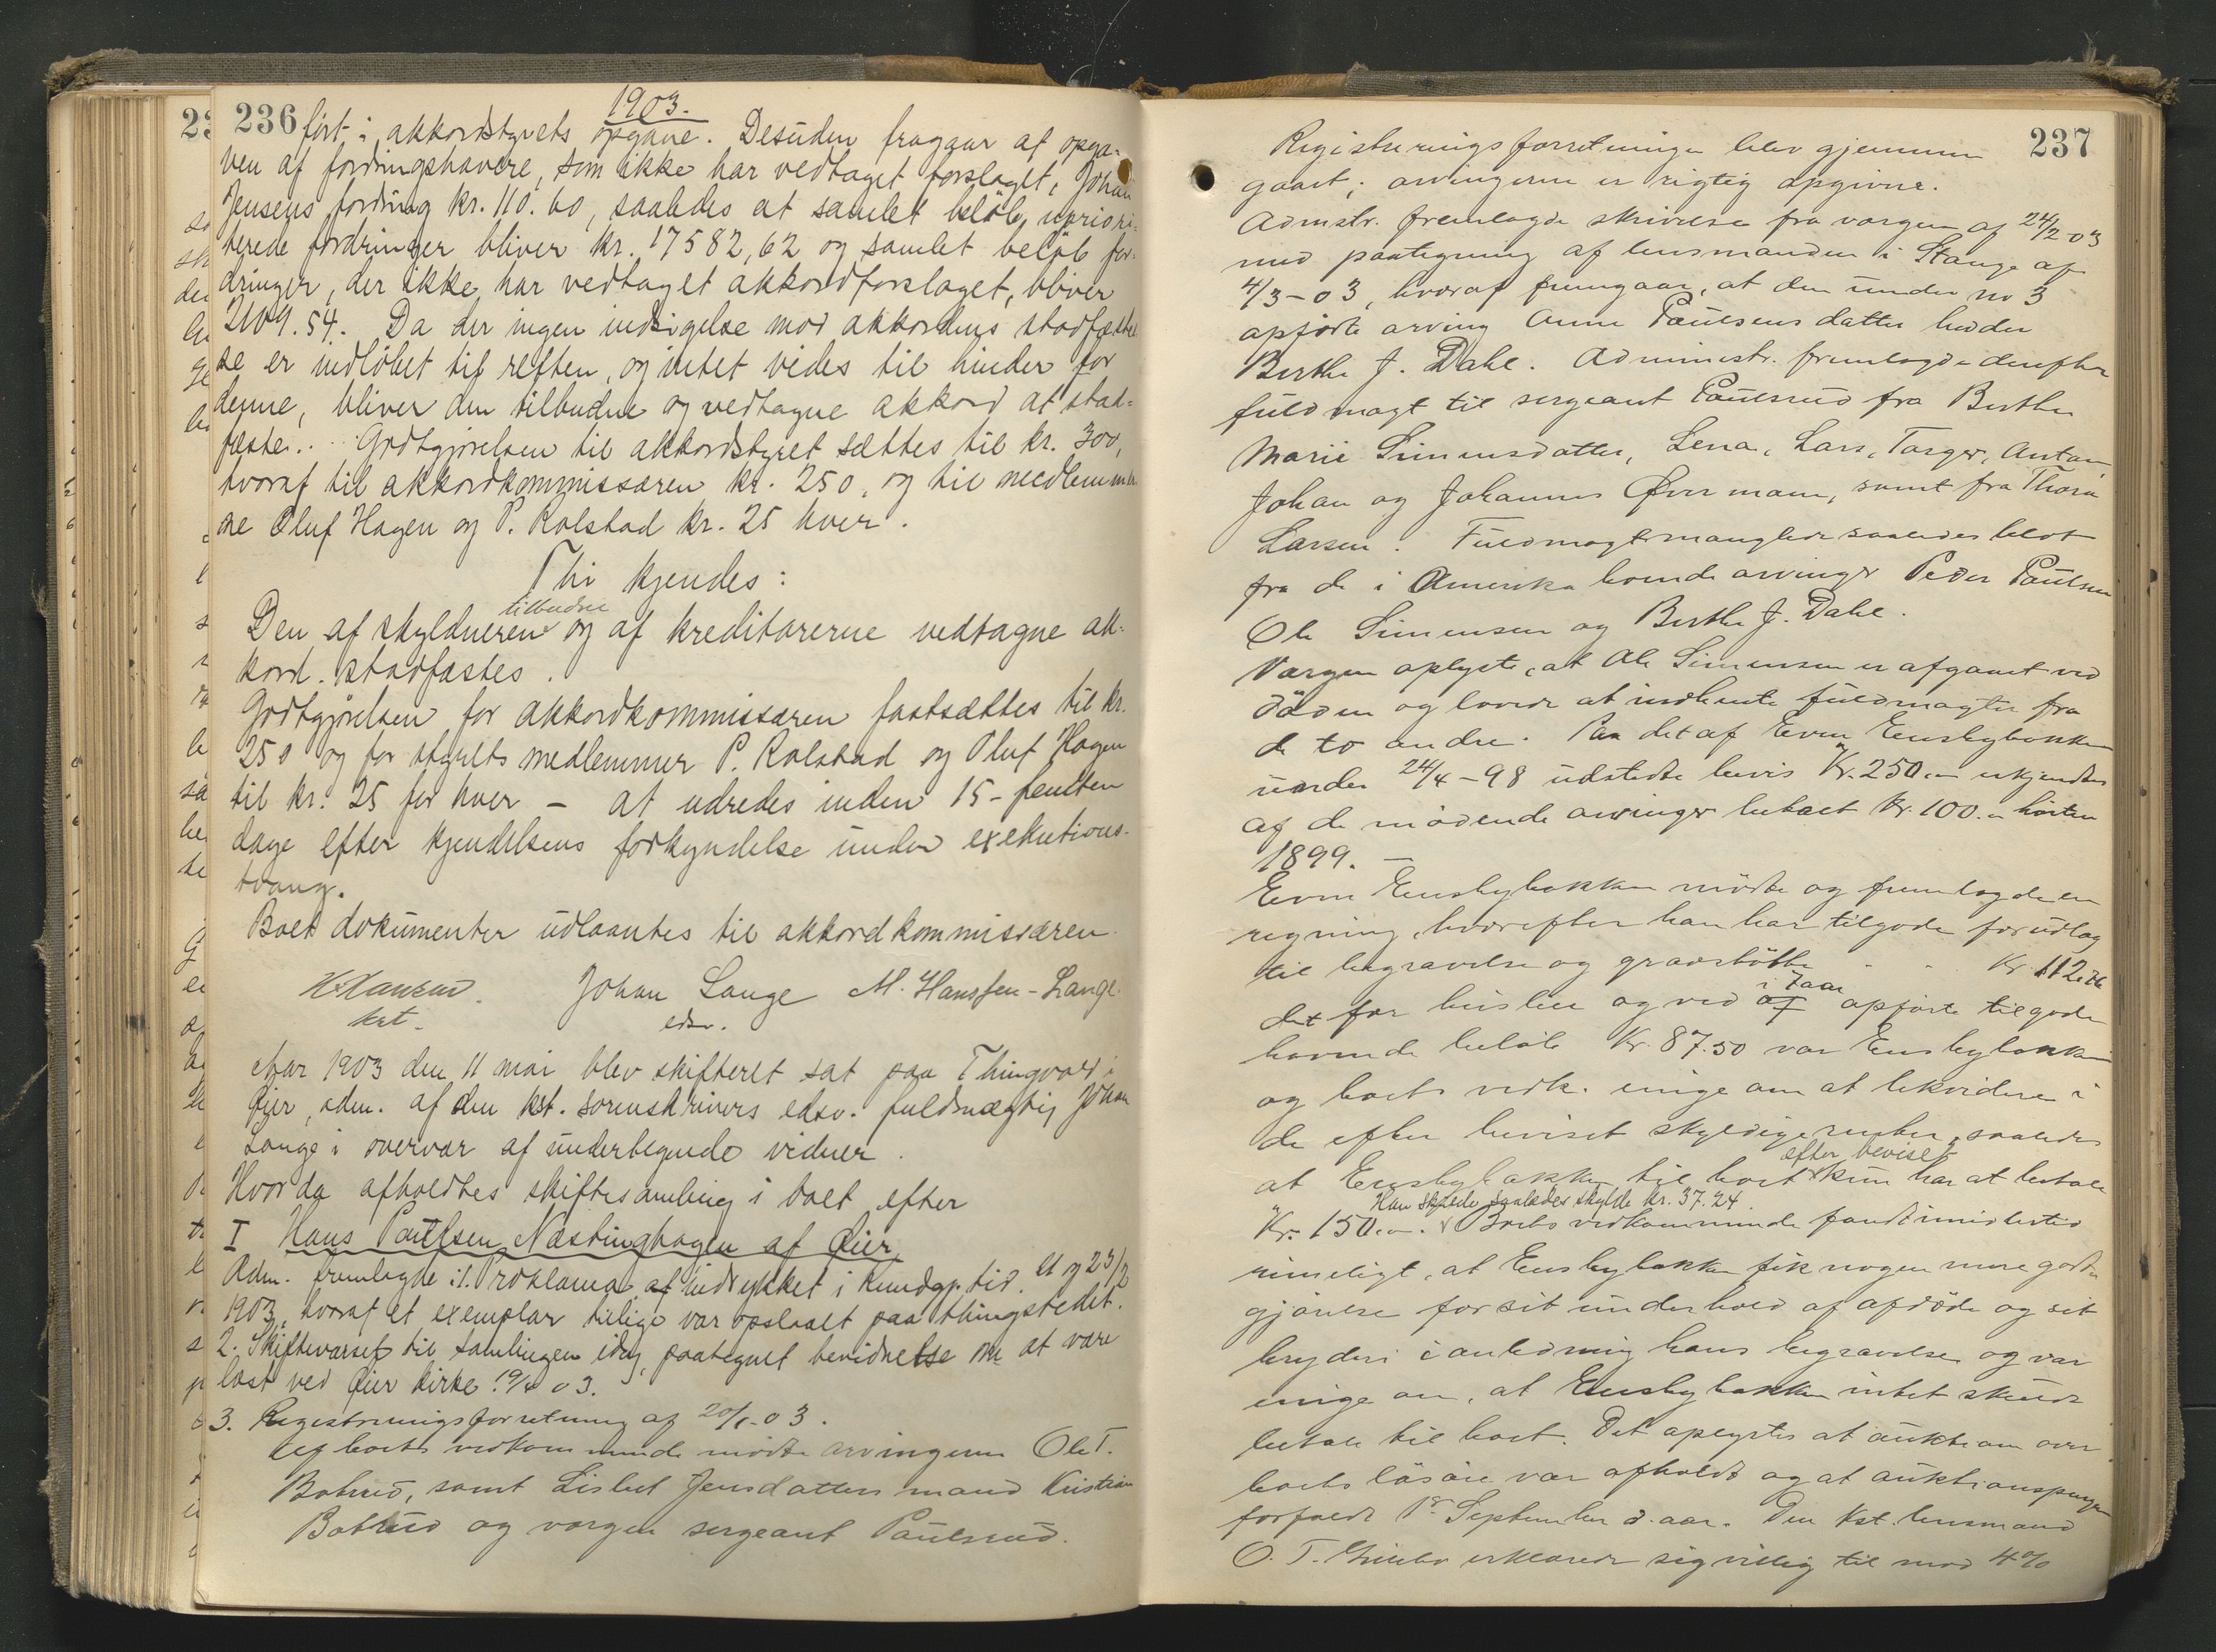 236
1903.
ført i akkordstyrets opgave. Desuden fragaar af opga-
ven af fordringshavere, som ikke har vedtaget forslaget, Johan
Jensens fordring kr. 110.60, saaledes at samlet beløb upriori-
terede fordringer bliver kr. 17582,62 og samlet beløb for-
dringer, der ikke har vedtaget akkordforslaget, bliver
2109.54. Da der ingen indsigelse mod akkordens stadfæstel
se er indløbet til retten, og intet vides til hinder for
denne, bliver den tilbudne og vedtagne akkord at stad-
fæste. Godtgjørelsen til akkordstyret sættes til kr. 300,
hvoraf til akkordkommissæren kr. 250, og til medlemmer
ne Oluf Hagen og P. Kolstad kr. 25 hver.
Thi kjendes:
tilbudne
Den af skyldneren og af kreditorerne vedtagne ak-
kord stadfæstes.
Godtgjørelsen for akkordkommissæren fastsættes til kr.
250 og for styrets medlemmer P. Kolstad og Oluf Hagen
til kr. 25 for hver – at udredes inden 15 – femten
dage efter kjendelsens forkyndelse under exekutions-
tvang.
Boets dokumenter udlaantes til akkordkommissæren.
Johan Lange M. Hanssen-Lange.
kst. edsv.
Aar 1903 den 11 mai blev skifteret sat paa Thingvold i
Øier, adm. af den kst. sorenskrivers edsv. fuldmægtig Johan
Lange i overvær af undertegnede vidner.
Hvorda afholdtes skiftesamling i boet efter
I Hans Paulsen Næstinghagen af Øier
Adm. fremlagde: 1. Proklama indrykket i Kundgj. tid. 21 og 23/2
1903, hvoraf et exemplar tillige var opslaaet paa thingstedet.
2. Skiftevarsel til samlingen idag, paategnet bevidnelse om at være
læst ved Øier kirke 19/4 03.
3. Registreringsforretning af 20/1-03.
Af boets vedkommende mødte arvingerne Ole T.
Botrud, samt Lisbet Jensdatters mand Kristian
Botrud og vergen sergeant Paulsrud.
237
Registreringsforretningen blev gjennem
gaaet; arvingerne er rigtig opgivne.
Admstr. fremlagde skrivelse fra vergen af 24/2 03
med paategning af lensmanden i Stange af
4/3-03, hvoraf fremgaar, at den under no 3
opførte arving Anne Paulsensdatter heder
Berthe J. Dahl. Administr. fremlagde derefter
fuldmagt til sergeant Paulsrud fra Berthe
Marie Simensdatter, Lena, Lars, Torger, Anton,
Johan og Johannes Øvermann, samt fra Thora
Larsen. Fuldmagt manglede saaledes blot
fra de i Amerika boende arvinger Peder Paulsen
Ole Simensen og Berthe J. Dahl.
Vergen oplyste, at Ole Simensen er afgaaet ved
døden og lovede at indhente fuldmagter fra
de to andre. Paa det af Even Ensbybakken
under 24/4-98 udstedte bevis Kr. 250.– erkjendtes
af de mødende arvinger betalt kr. 100.– høsten
1899. –
Even Ensbybakken mødte og fremlagde en
regning, hvorefter han har tilgode for udlæg
til begravelse og gravstøtte - - Kr. 112.76
i 7 aar
det for husleie og ved opførte tilgode
havende beløb Kr. 87.50 var Ensbybakken
og boets vedk. enige om at likvidere i
de efter beviset skyldige renter, saaledes
efter beviset
at Ensbybakken til boet kun har at betale
Han skyldte saaledes skylde kr. 37.24.
Kr. 150.–. Boets vedkommende fandt imidlertid
rimeligt, at Ensbybakken fik nogen mere godt-
gjørelse for sit underhold af afdøde og sit
bryderi i anledning hans begravelse og var
enige om, at Ensbybakken intet skulde
betale til boet. Det oplystes at auktion over
boets løsøre var afholdt og at auktionspengene
forfaldt 1ste September d. aar. Den kst. lensmand
O. T. erklærede sig villig til mod 4%